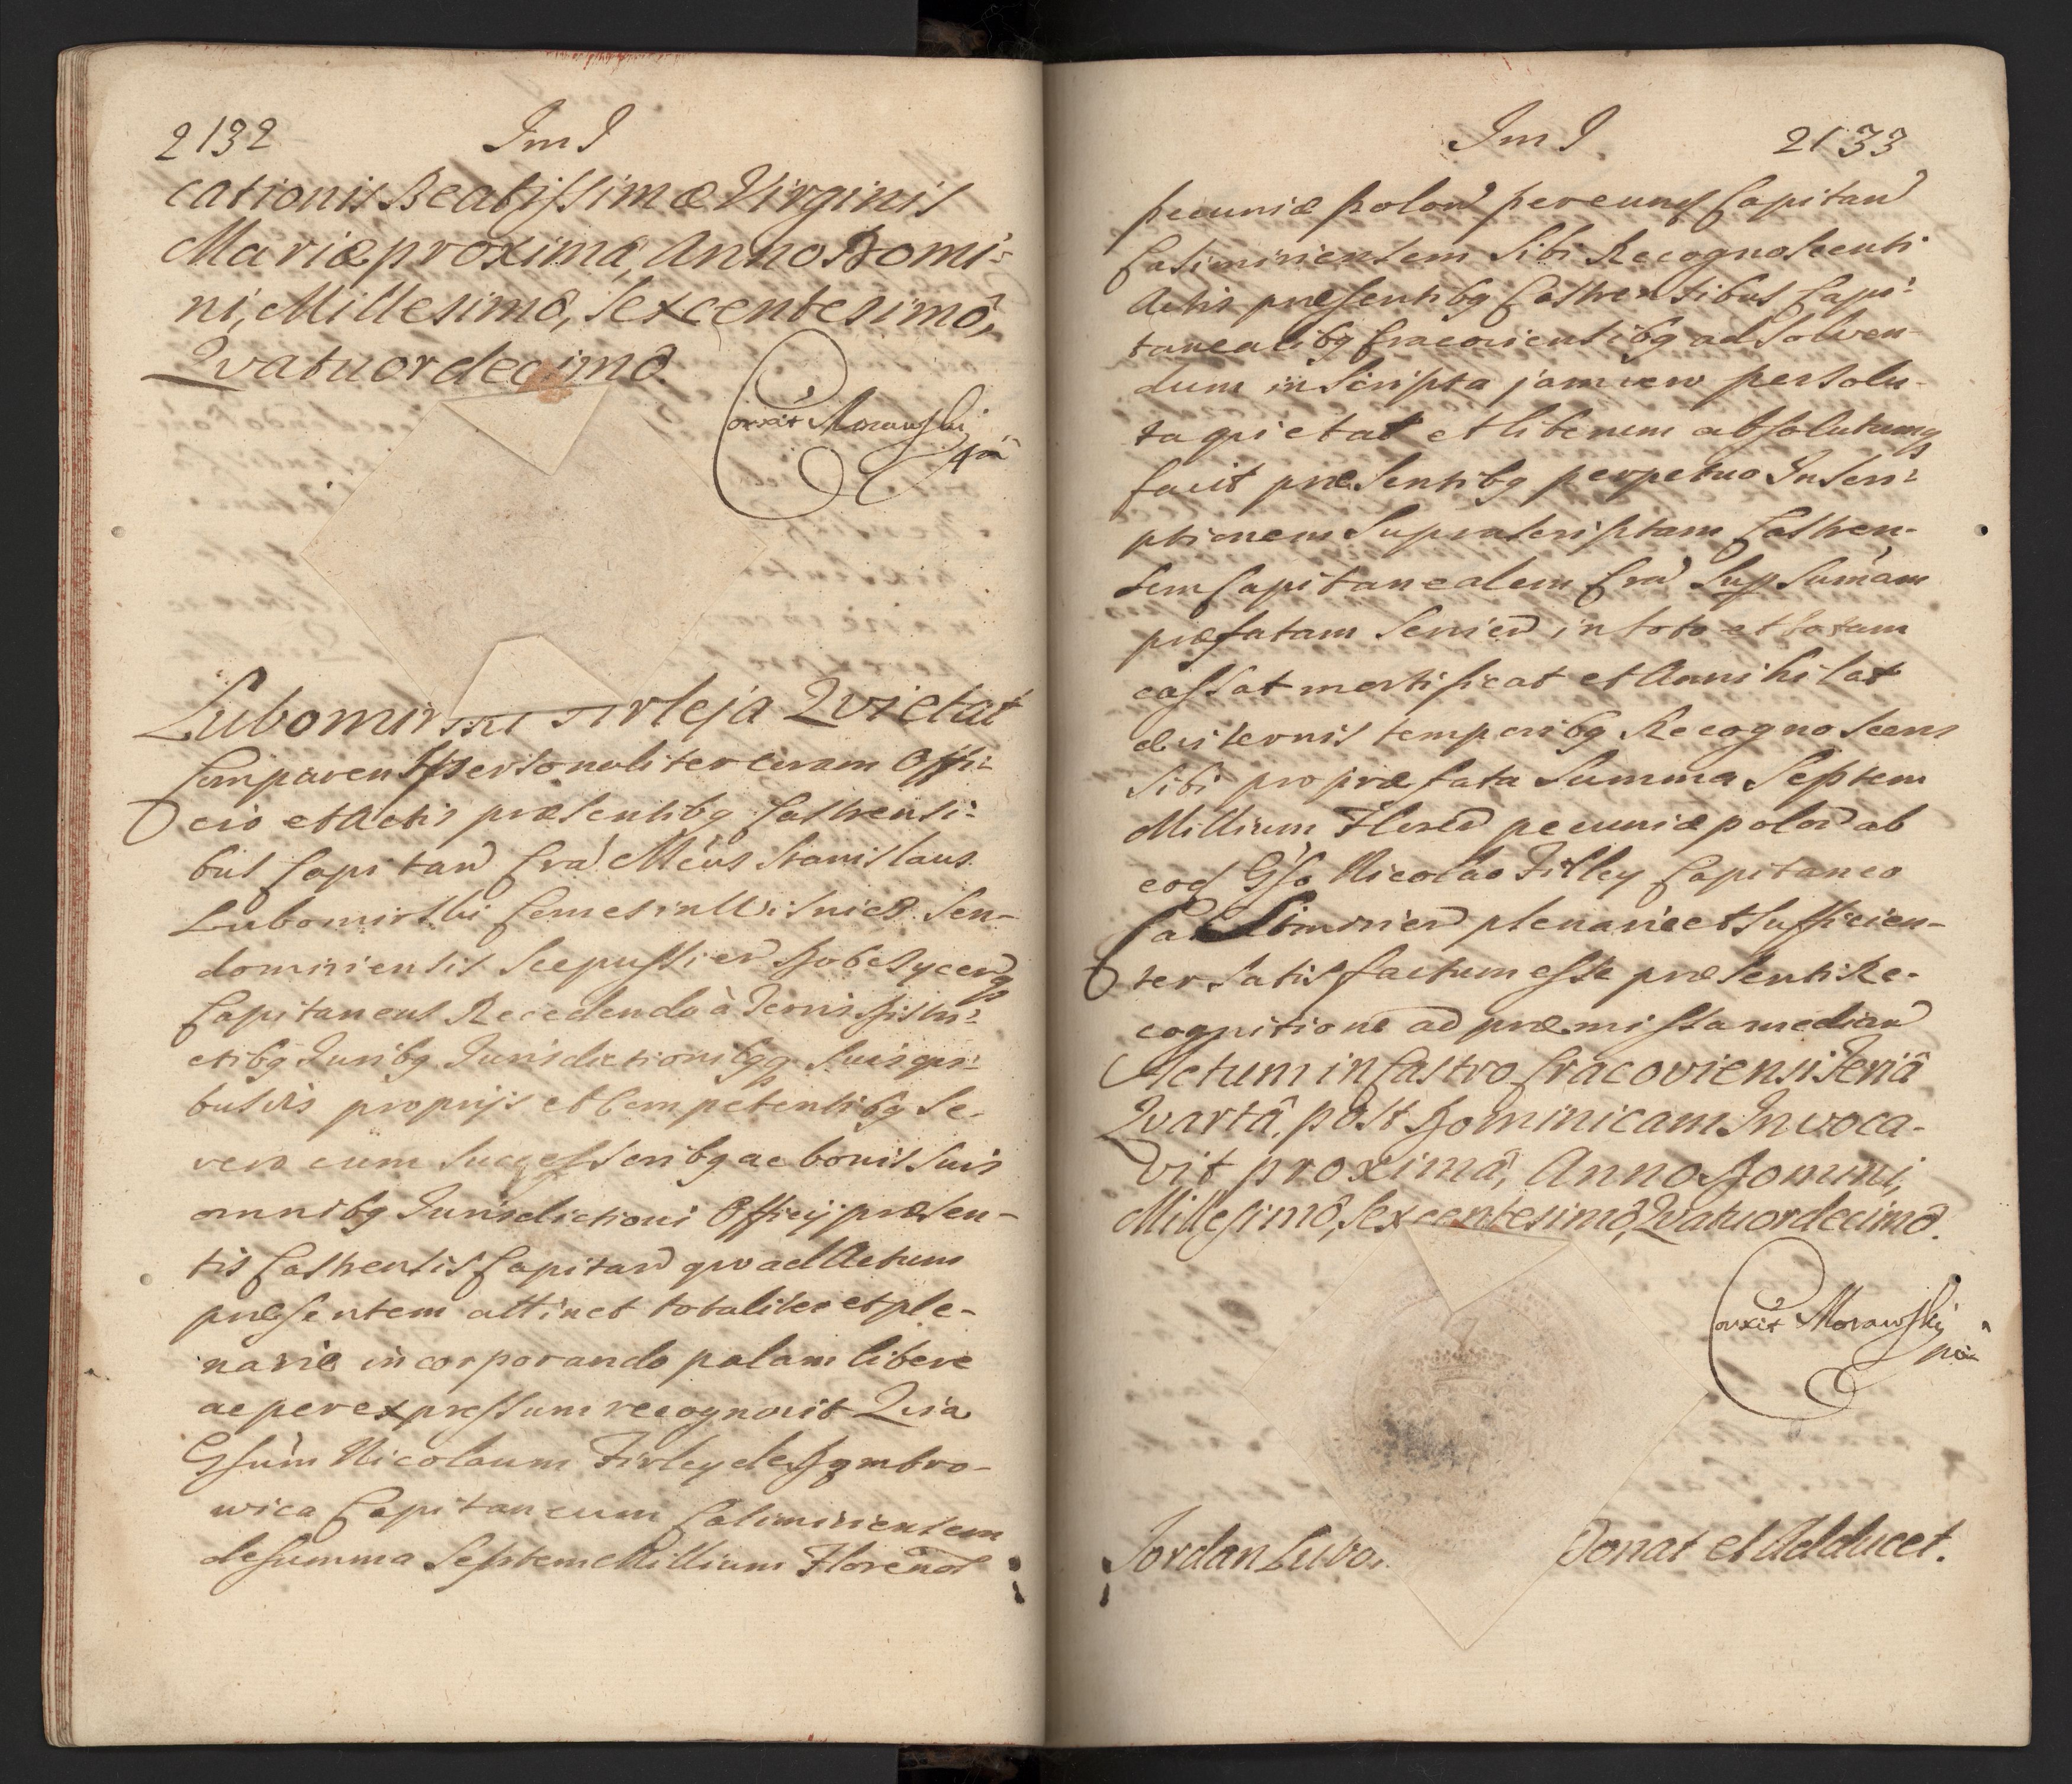 2132 Im I
cationis Beatissimæ Virginis
Mariæ proxima, Anno Domi-
ni, Millesimô, Sexcentesimô,
Quatuordecimô.
Corrxit Morawski
mp
Lubomirski Firleja Quietat
Comparens personaliter coram Offi-
cio et Actis præsentibq Castrensi-
bus Capitan Cra Mcus Stanislaus
Lubomirski Comes in Wisnicz Sen-
domiriensis Scepussien Dobcsycenq
Capitaneus Recedendo à Terris Distri-
ctibq Juribq Jurisdictionibqq suis qui-
busvis proprijs et Competentibq Se-
vero cum Successoribq ac bonis suis
omnibq Jurisdictioni Officij præsen-
tis Castrensis Capitan quo ad Actum
præsentem attinet totaliter et ple-
narie incorporando palam libere
ac per expressum recognovit Quia
Gsum Nicolaum Firley de Dqmbro-
wica Capitaneum Casimiriensem
de summa Septem Millium Floreno
Im I 2133
pecuniæ polon per eund Capitan
Casimiriensem Sibi Recognoscenti
Actis præsentibq Castrensibus Capi-
tanealibq Cracoviensibq ad Solven-
dum inscripta jam vero persolu-
ta quietat et liberum absolutumq
facit præsentibq perpetuo Inscri-
ptionem Suprascriptam Castren-
sem Capitanealem Cra Sup Sumam
præfatam Servien in toto et totam
cassat mortificat et Annihilat
æviternis temporibq Recognoscens
Sibi pro præfata Summa Septem
Millium Floren pecuniæ polon ab
eod Gso Nicolao Firley Capitaneo
Casimirien plenarie et Sufficien-
ter Satisfactum esse præsenti Re-
cognitione ad præmissa median
Actum in Castro Cracoviensi Feriâ
Quartâ, post Dominicam Invoca-
vit proximâ, Anno Domini,
Millesimô, Sexcentesimô, Quatuordecimô.
Corrxit Morawski
mp
Jordan Lubo Donat et Adducet.